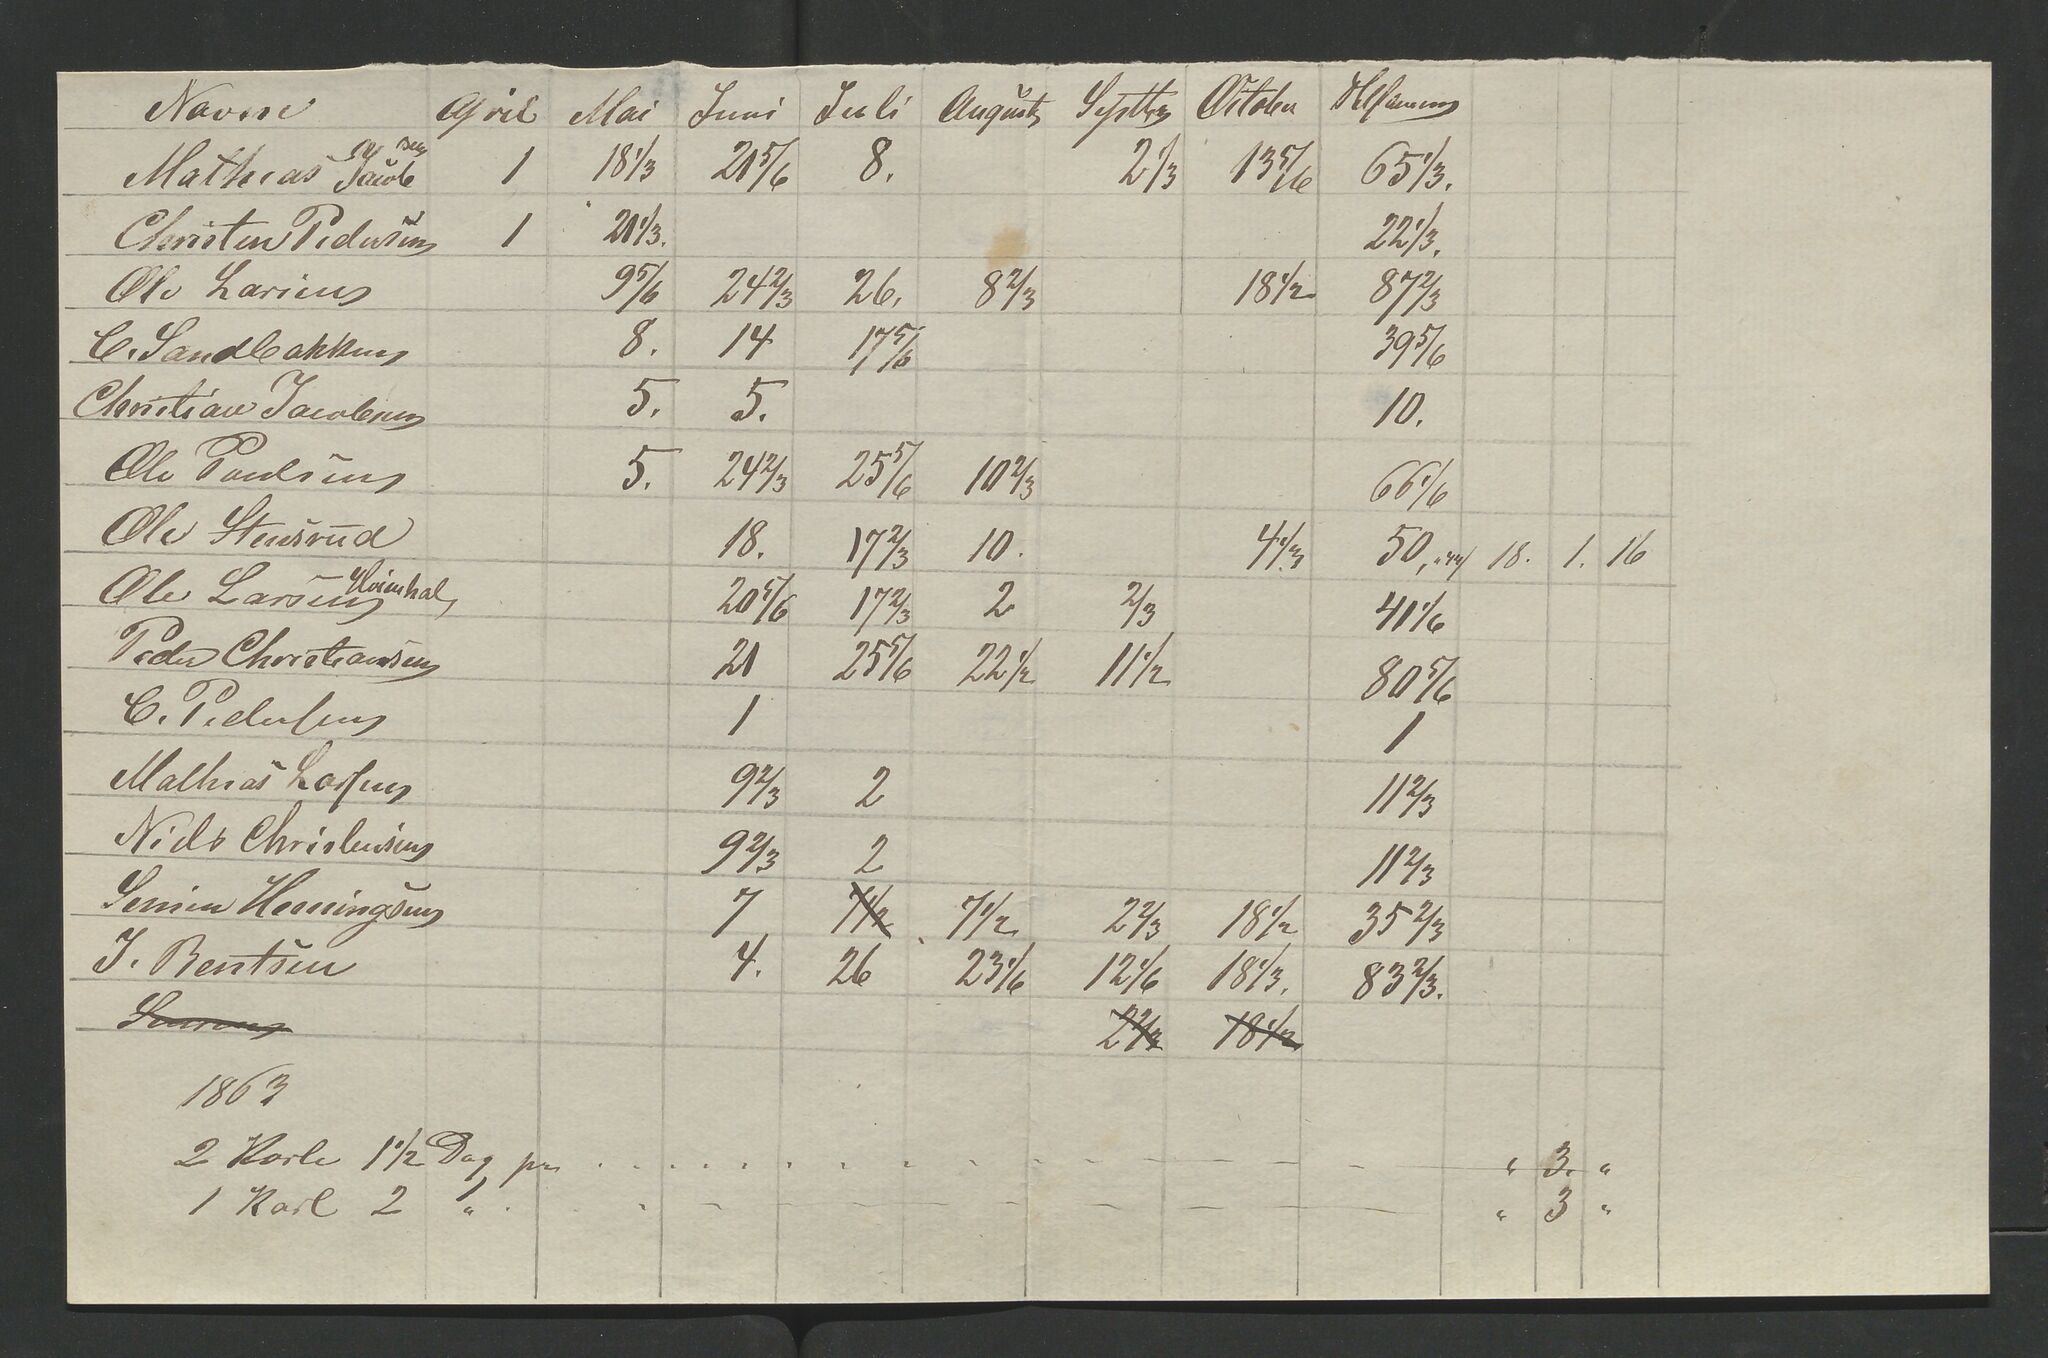 Navne April Mai Juni Juli August Septbr October
Mathias Jacobsen 1 18 1/3 20 5/6 8. 2 1/3 13 5/6 65 1/3.
Christen Pedersen 1 21 1/3. 22 1/3.
Ole Larsen 9 5/6 24 2/3 26. 8 2/3 18 1/2 87 2/3
C. Sandbakken 8. 14 17 5/6 39 5/6
Christian Jacobsen 5. 5. 10.
Ole Paulsen 5. 24 2/3 25 5/6 10 2/3 66 1/6
Ole Stensrud 18. 17 2/3 10. 4 1/3 50, 18. 1. 16
Ole Larsen 20 5/6 17 2/3 2 2/3 41 1/6
Peder Christiansen 21 25 5/6 22 1/2 11 1/2 80 5/6
C. Pedersen 1 1
Mathias Larsen 9 2/3 2 11 2/3
Niels Christensen 9 2/3 2 11 2/3
Simen Hemingsen 7 7 1/2 7 1/2 2 2/3 18 1/2 35 2/3
J. Bentsen 4. 26 23 1/6 12 1/6 18 1/3. 83 2/3.
2 2/3 18 1/2
1863
2 Karle 1 1/2 Dag pr " 3. "
1 Karl 2 " " 3 "